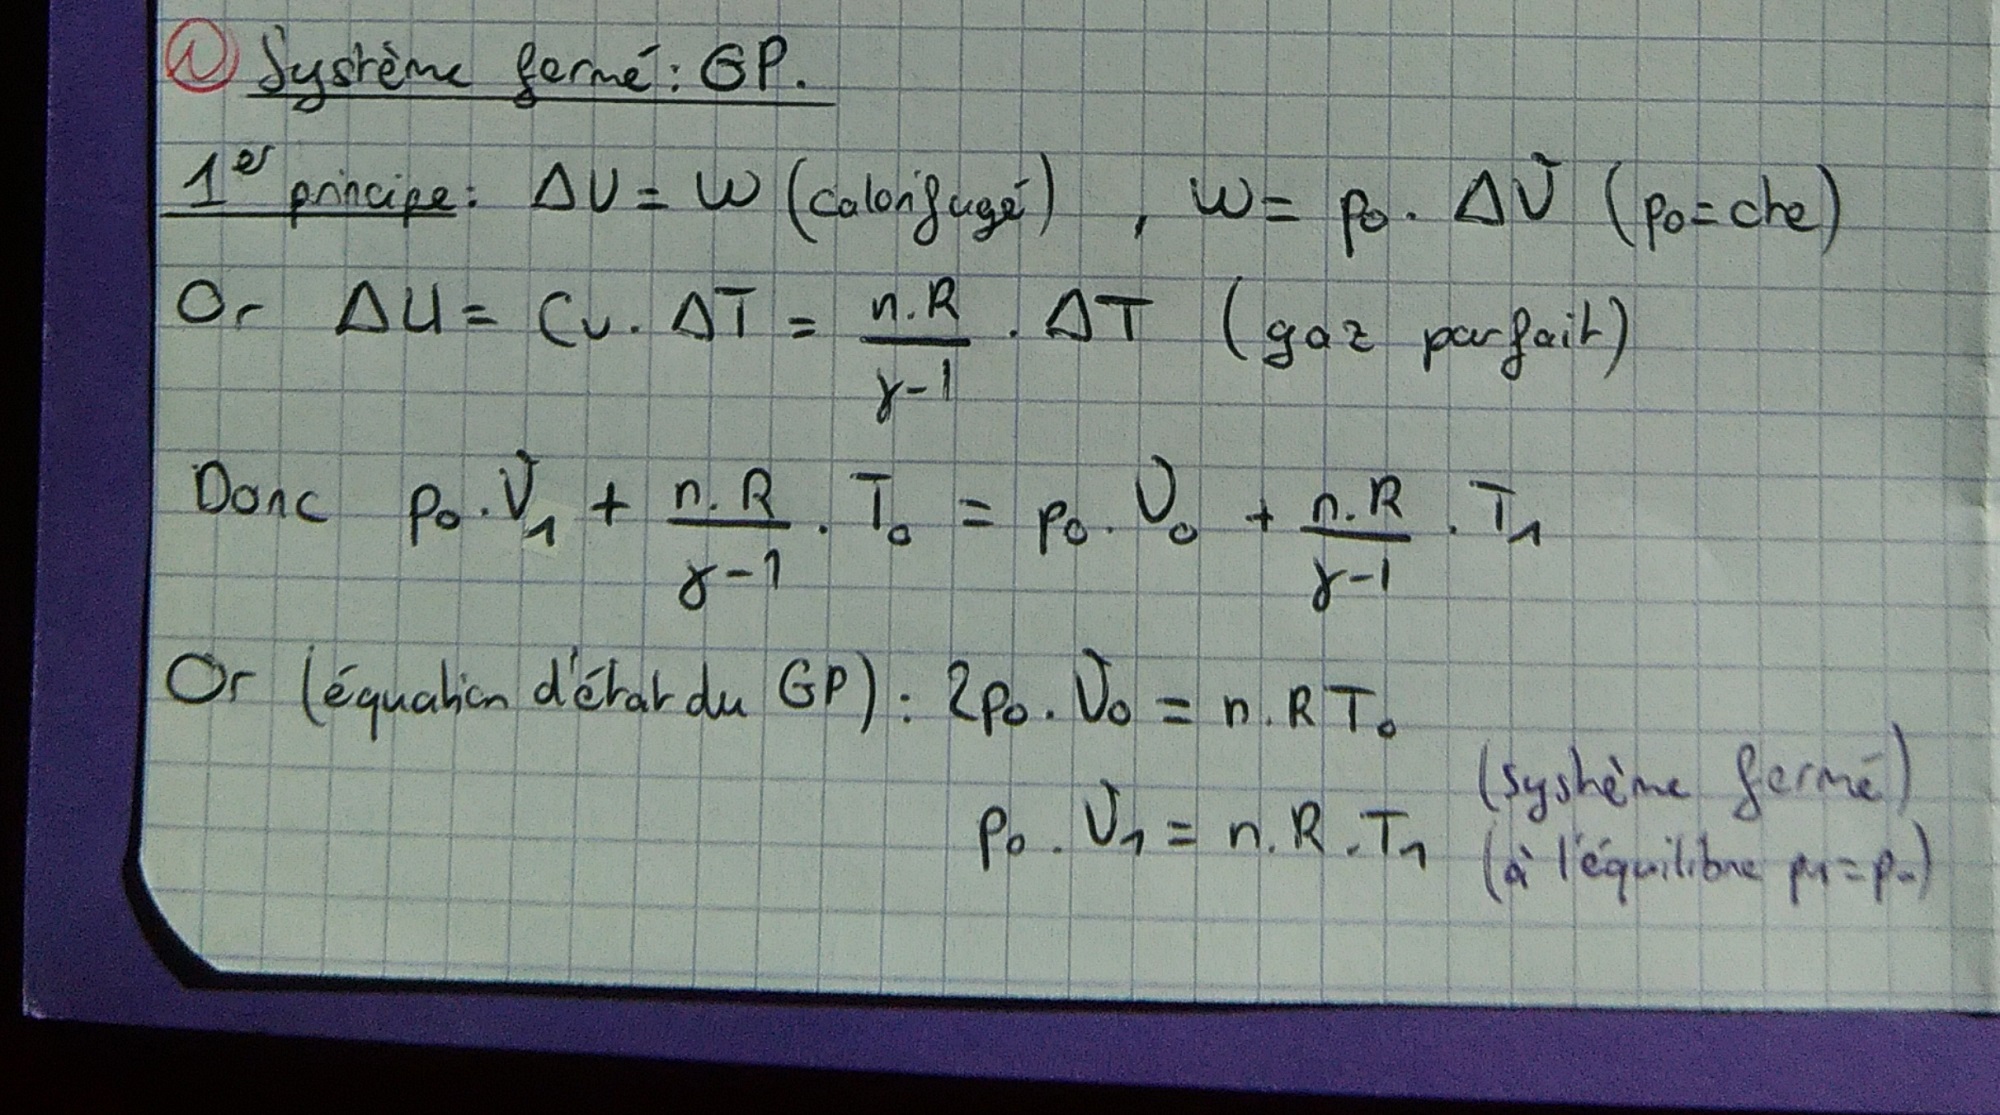 ① Système fermé : GP.
1er principe : ΔU = W (calorifugé) , W = p₀ . ΔV (p₀ = cte)
Or ΔU = Cv . ΔT = n.R/(γ-1) . ΔT (gaz parfait)
Donc p₀.V₁ + n.R/(γ-1) . T₀ = p₀.V₀ + n.R/(γ-1) . T₁
Or (équation d'état du GP) : 2p₀.V₀ = n.RT₀
(système fermé)
p₀.V₁ = n.R.T₁ (à l'équilibre p₁=p₀)